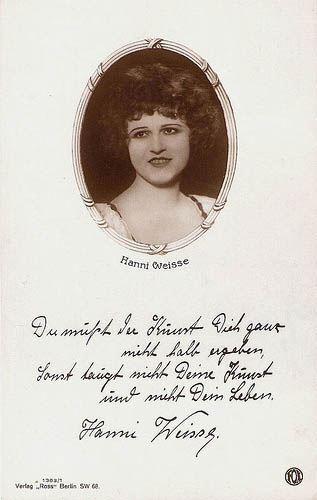 Hanni Weisse
Du mußt der Kunst Dich ganz
nicht halb ergeben,
Sonst taugt nicht Deine Kunst
und nicht Dein Leben.
Hanni Weisse.
1383/1
Verlag „Ross" Berlin SW 68.